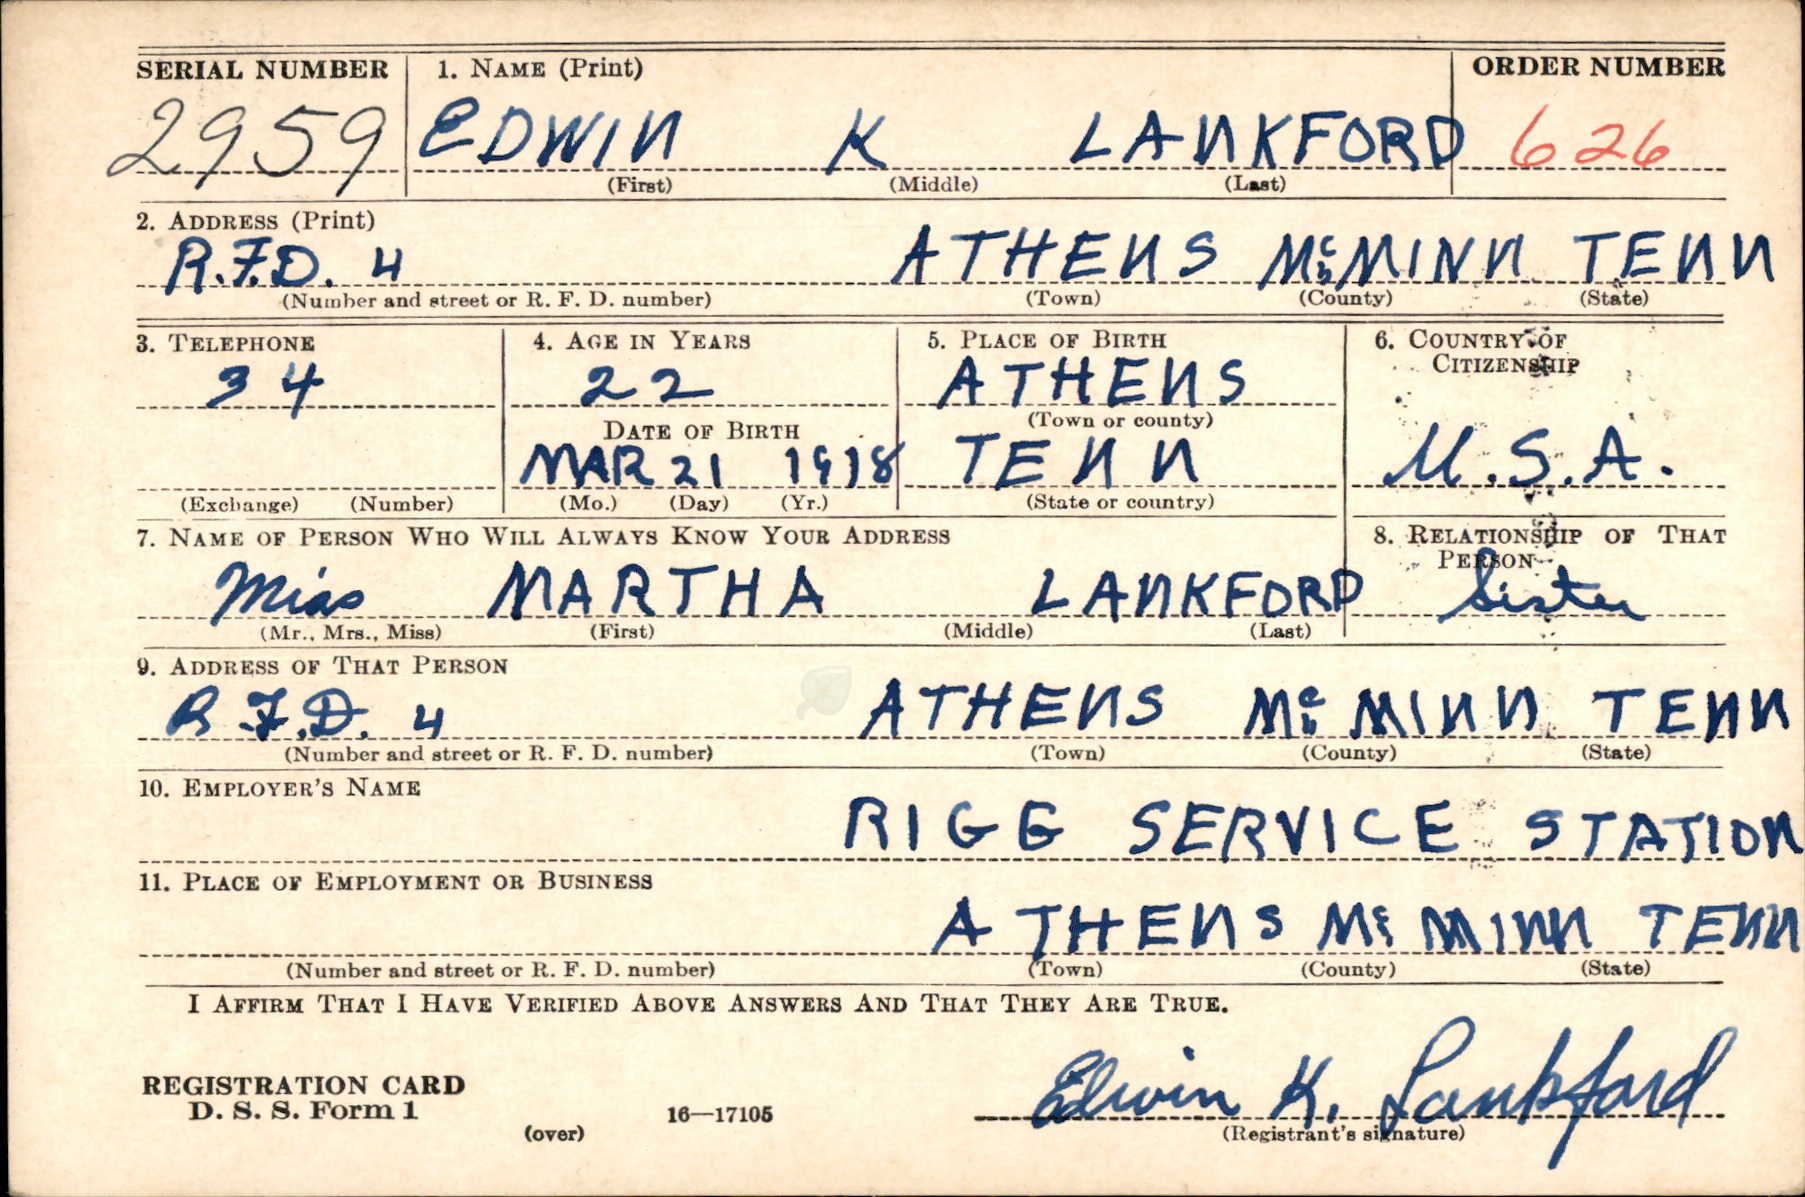 SERIAL NUMBER 1. NAME (Print) ORDER NUMBER
2959 EDWIN K LANKFORD 626
(First) (Middle) (Last)
2. ADDRESS (Print)
R.F.D. 4 ATHENS McMINN TENN
(Number and street or R. F. D. number) (Town) (County) (State)
3. TELEPHONE 4. AGE IN YEARS 5. PLACE OF BIRTH 6. COUNTRY OF
CITIZENSHIP
34 22 ATHENS
(Town or county)
DATE OF BIRTH
MAR 21 1918 TENN U.S.A.
(Exchange) (Number) (Mo.) (Day) (Yr.) (State or country)
7. NAME OF PERSON WHO WILL ALWAYS KNOW YOUR ADDRESS 8. RELATIONSHIP OF THAT
PERSON
Miss MARTHA LANKFORD Sister
(Mr., Mrs., Miss) (First) (Middle) (Last)
9. ADDRESS OF THAT PERSON
R.F.D. 4 ATHENS McMINN TENN
(Number and street or R. F. D. number) (Town) (County) (State)
10. EMPLOYER'S NAME
RIGG SERVICE STATION
11. PLACE OF EMPLOYMENT OR BUSINESS
ATHENS McMINN TENN
(Number and street or R. F. D. number) (Town) (County) (State)
I AFFIRM THAT I HAVE VERIFIED ABOVE ANSWERS AND THAT THEY ARE TRUE.
REGISTRATION CARD
D. S. S. Form 1 16—17105 Edwin K. Lankford
(over) (Registrant's signature)